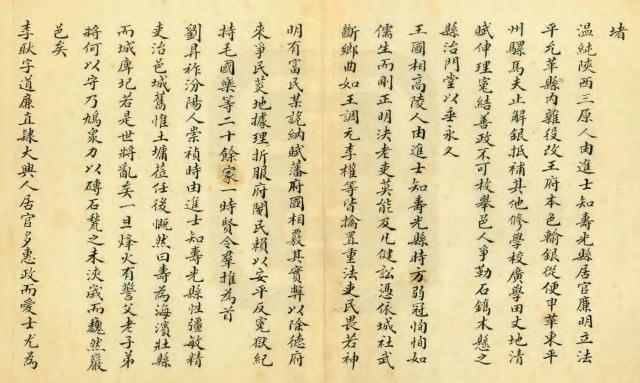 堵
温純陝西三原人由進士知壽光縣居官廉明立法
平允革縣内雜役改王府本色輸銀從便申革東平
州騾馬夫止解銀抵補其他修學校廣學田丈地清
賦伸理寃結善政不可枚舉邑人爭勒石鐫木懸之
縣治門堂以垂永久
王國相高陵人由進士知壽光縣時方弱冠恂恂如
儒生而剛正明決老吏莫能及凡健訟憑依城社武
斷鄉曲如王調元李權等皆擒置重法吏民畏若神
明有富民某詭納賦藩府國相覈其實弊以除德府
來爭民茭地據理折服府閹民賴以安平反寃獄紀
持毛國樂等二十餘家一時賢令羣推為首
劉昇祚汾陽人崇禎時由進士知壽光縣性彊敏精
吏治邑城舊惟土墉莅任後慨然曰壽為海濱壯縣
而城庳圮若是世將亂矣一旦烽火有警父老子弟
將何以守乃鳩衆力以磚石甃之未浹歲而巍然嚴
邑矣
李耿字道廉直隸大興人居官多惠政而愛士尤為